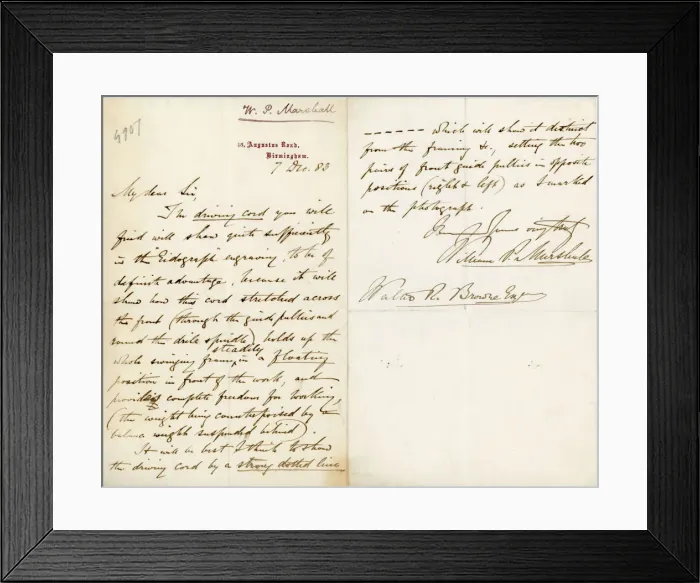 W. P. Marshall
4907
15, Augustus Road,
Birmingham.
7 Dec. 83
My dear Sir,
The driving cord you will
find will show quite sufficiently
in the "Eidograph" engraving, to be of
definite advantage, because it will
show how this cord stretched across
the front (through the guide pullies and
round the drill spindle) holds up the
steadily
whole swinging frame, in a floating
position in front of the work, and
provides complete freedom for working,
(the weight being counterpoised by
balance weights suspended behind).
It will be best I think to show
the driving cord by a strong dotted line
------ which will show it distinct
from the framing &c., setting the two
pairs of front guide pullies in opposite
positions (right & left) as I marked
on the photograph.
Yours very truly
William P. Marshall
Walter R. Browne Esq